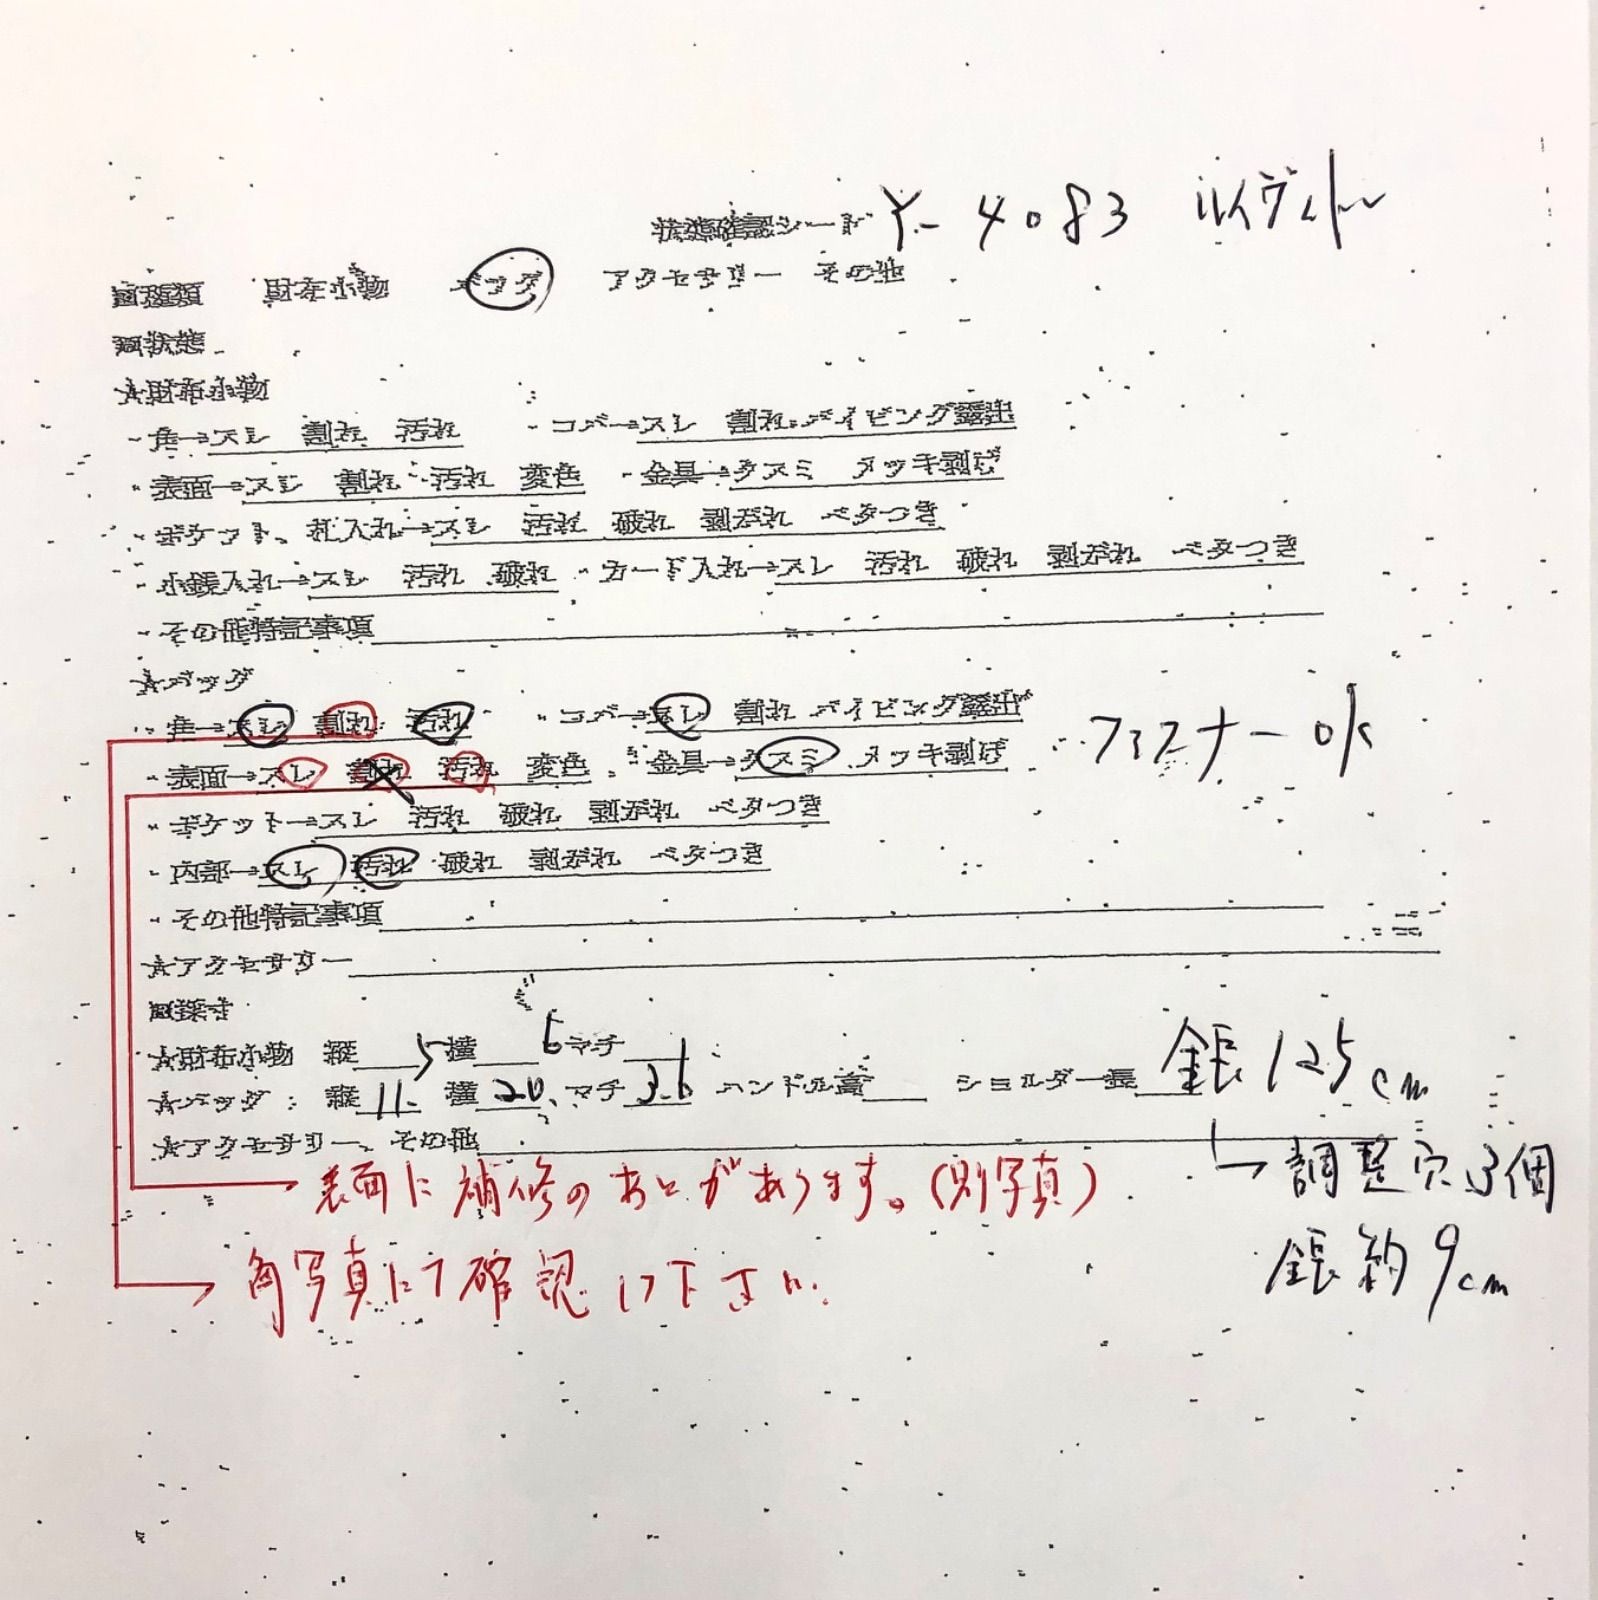 状態確認シート Y-4083 ルイヴィトン
■種類 財布小物 バッグ アクセサリー その他
■状態
☆財布小物
・角→スレ 割れ 汚れ ・コバ→スレ 割れ パイピング露出
・表面→スレ 割れ 汚れ 変色 ・金具→クスミ メッキ剥げ
・ポケット、札入れ→スレ 汚れ 破れ 剥がれ ベタつき
・小銭入れ→スレ 汚れ 破れ ・カード入れ→スレ 汚れ 破れ 剥がれ ベタつき
・その他特記事項
☆バッグ
・角→スレ 割れ 汚れ ・コバ→スレ 割れ パイピング露出
・表面→スレ 割れ 汚れ 変色 ・金具→クスミ メッキ剥げ ファスナーOK
・ポケット→スレ 汚れ 破れ 剥がれ ベタつき
・内部→スレ 汚れ 破れ 剥がれ ベタつき
・その他特記事項
☆アクセサリー
■採寸
☆財布小物 縦 横 マチ
☆バッグ:縦 11.5 横 20.5 マチ 3.6 ハンドル高 ショルダー長 全長125cm
☆アクセサリー、その他
調整穴3個
表面に補修のあとがあります。(別写真)
全長約9cm
角写真にて確認して下さい。